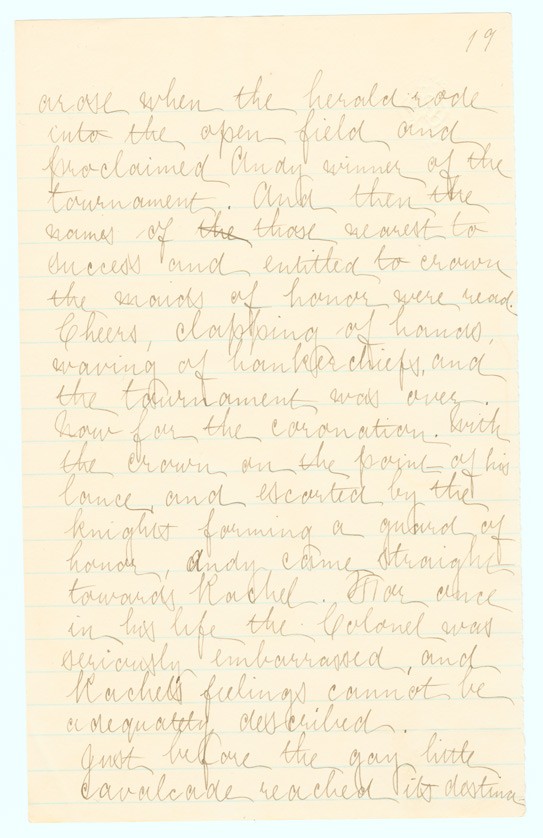 19
arose when the herald rode
into the open field and
proclaimed Andy winner of the
tournament. And then the
names of the those nearest to
success and entitled to crown
the maids of honor were read.
Cheers, clapping of hands,
waving of hankerchiefs, and
the tournament was over.
Now for the coronation. With
the crown on the point of his
lance, and escorted by the
knights forming a guard of
honor, Andy came straight
towards Rachel. For once
in his life the Colonel was
seriously embarrassed, and
Rachel's feelings cannot be
adequatly described.
Just before the gay little
cavalcade reached its destina-